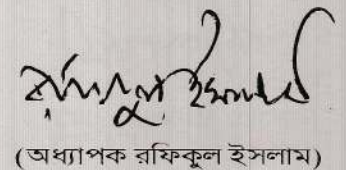 রফিকুল ইসলাম
(অধ্যাপক রফিকুল ইসলাম)